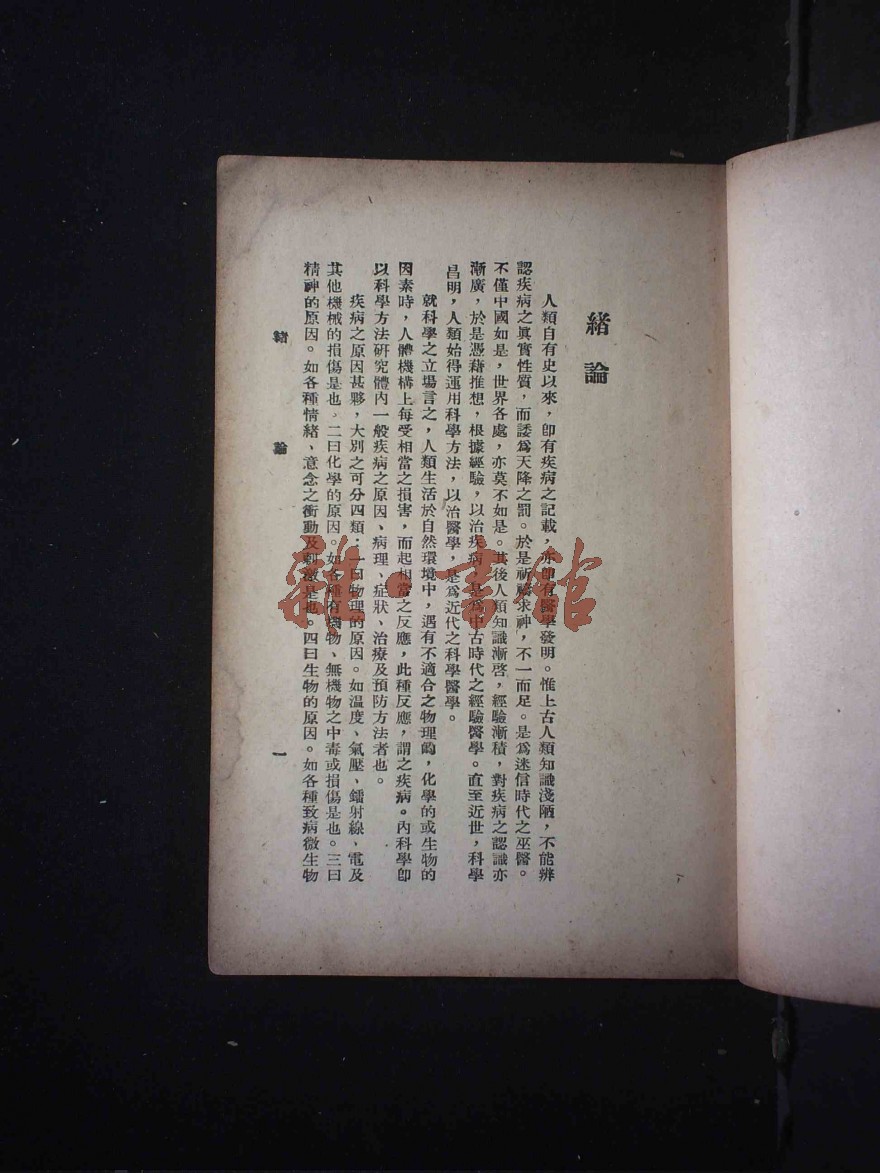 緒論
人類自有史以來，卽有疾病之記載，亦卽有醫學發明。惟上古人類知識淺陋，不能辨
認疾病之眞實性質，而諉爲天降之罰。於是祈禱求神，不一而足。是爲迷信時代之巫醫。
不僅中國如是，世界各處，亦莫不如是。其後人類知識漸啓，經驗漸積，對疾病之認識亦
漸廣，於是憑藉推想，根據經驗，以治疾病，是爲中古時代之經驗醫學。直至近世，科學
昌明，人類始得運用科學方法，以治醫學，是爲近代之科學醫學。
就科學之立場言之，人類生活於自然環境中，遇有不適合之物理的，化學的或生物的
因素時，人體機構上每受相當之損害，而起相當之反應，此種反應，謂之疾病。內科學卽
以科學方法研究體內一般疾病之原因、病理、症狀、治療及預防方法者也。
疾病之原因甚夥，大別之可分四類：一曰物理的原因。如溫度、氣壓、鐳射線、電及
其他機械的損傷是也。二曰化學的原因。如各種有機物、無機物之中毒或損傷是也。三曰
精神的原因。如各種情緒、意念之衝動及刺激是也。四曰生物的原因。如各種致病微生物
緒論
一
雜·書館